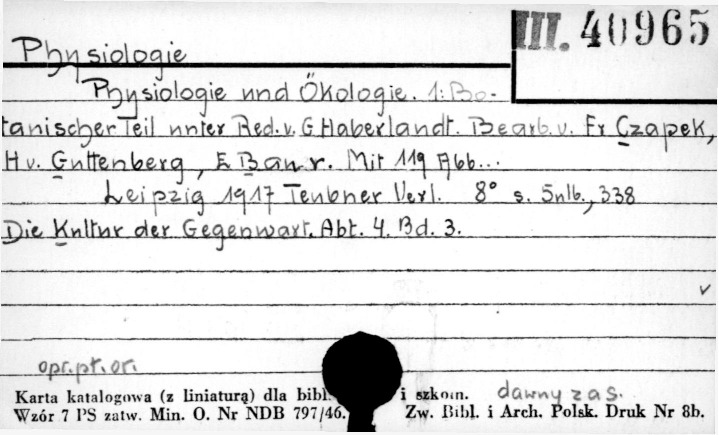 III. 40965
Physiologie
Physiologie und Ökologie. 1: Bo-
tanischer Teil unter Red. v. G. Haberlandt. Bearb. v. Fr Czapek,
H v. Guttenberg, E Baur. Mit 119 Abb...
Leipzig 1917 Teubner Verl. 8° s. 5nlb., 338
Die Kultur der Gegenwart. Abt. 4. Bd. 3.
opr. pł. ori.
dawny zas.
Karta katalogowa (z liniaturą) dla bibl. i szkoln.
Wzór 7 PS zatw. Min. O. Nr NDB 797/46. Zw. Bibl. i Arch. Polsk. Druk Nr 8b.